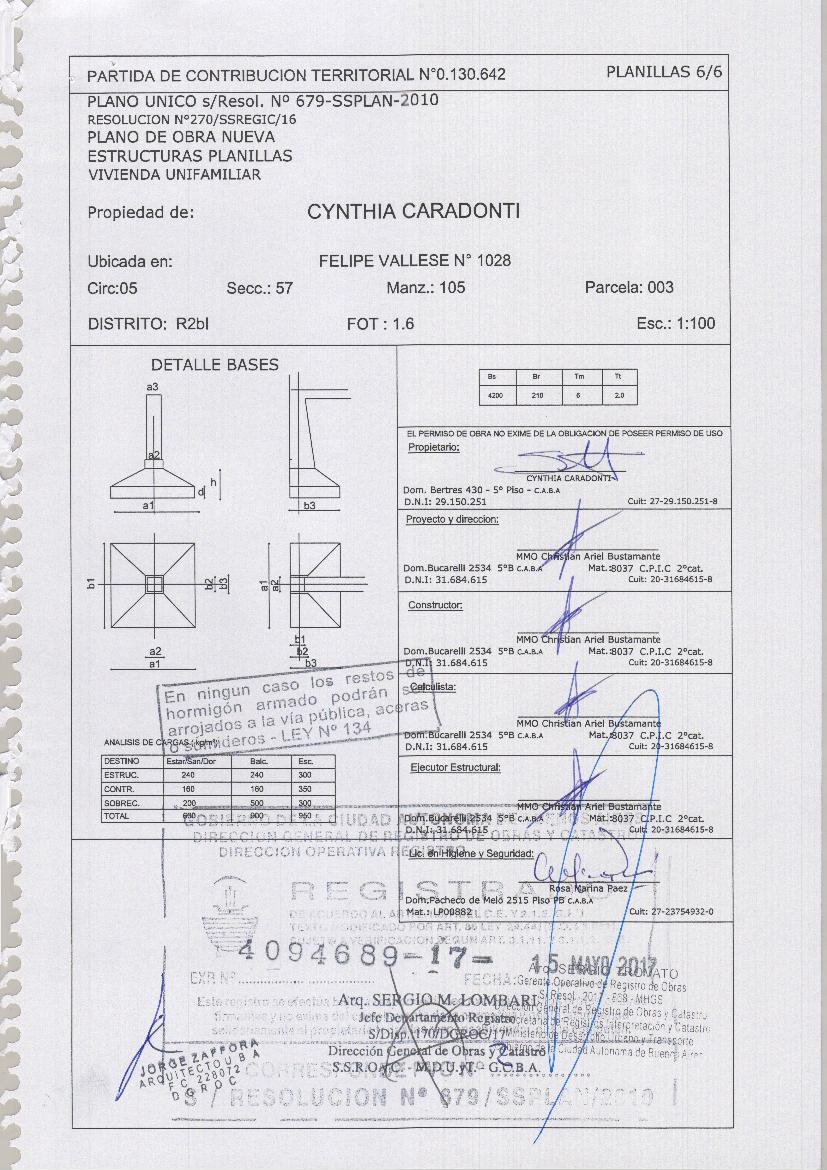 PARTIDA DE CONTRIBUCION TERRITORIAL N°0.130.642
PLANILLAS 6/6
PLANO UNICO s/Resol. Nº 679-SSPLAN-2010
RESOLUCION N°270/SSREGIC/16
PLANO DE OBRA NUEVA
ESTRUCTURAS PLANILLAS
VIVIENDA UNIFAMILIAR
Propiedad de: CYNTHIA CARADONTI
Ubicada en: FELIPE VALLESE N° 1028
Circ:05 Secc.: 57 Manz.: 105 Parcela: 003
DISTRITO: R2bI FOT : 1.6 Esc.: 1:100
DETALLE BASES
a3
a2
h
d
a1
b3
b1
b2
b3
a1
a2
b1
a2
b2
a1
b3
En ningun caso los restos de
hormigón armado podrán ser
arrojados a la vía pública, aceras
o sumideros - LEY Nº 134
ANALISIS DE CARGAS (kg/m²)
DESTINO Estar/San/Dor Balc. Esc.
ESTRUC. 240 240 300
CONTR. 160 160 350
SOBREC. 200 500 300
TOTAL 600 900 950
Bs Br Tm Tt
4200 210 6 2.0
EL PERMISO DE OBRA NO EXIME DE LA OBLIGACION DE POSEER PERMISO DE USO
Propietario:
CYNTHIA CARADONTI
Dom. Bertres 430 - 5° Piso - C.A.B.A
D.N.I: 29.150.251 Cuit: 27-29.150.251-8
Proyecto y direccion:
MMO Christian Ariel Bustamante
Dom.Bucarelli 2534 5°B C.A.B.A Mat.:8037 C.P.I.C 2°cat.
D.N.I: 31.684.615 Cuit: 20-31684615-8
Constructor:
MMO Christian Ariel Bustamante
Dom.Bucarelli 2534 5°B C.A.B.A Mat.:8037 C.P.I.C 2°cat.
D.N.I: 31.684.615 Cuit: 20-31684615-8
Calculista:
MMO Christian Ariel Bustamante
Dom.Bucarelli 2534 5°B C.A.B.A Mat.:8037 C.P.I.C 2°cat.
D.N.I: 31.684.615 Cuit: 20-31684615-8
Ejecutor Estructural:
MMO Christian Ariel Bustamante
Dom.Bucarelli 2534 5°B C.A.B.A Mat.:8037 C.P.I.C 2°cat.
D.N.I: 31.684.615 Cuit: 20-31684615-8
Lic. en Higiene y Seguridad:
Rosa Marina Paez
Dom.Pacheco de Melo 2515 Piso PB C.A.B.A
Mat.: LP00882 Cuit: 27-23754932-0
GOBIERNO DE LA CIUDAD AUTONOMA DE BUENOS AIRES
DIRECCION GENERAL DE REGISTRO DE OBRAS Y CATASTRO
DIRECCION OPERATIVA REGISTRO
REGISTRADO
4094689-17= 15 MAYO 2017
EXP. Nº FECHA:
Arq. SERGIO TRONATO
Gerente Operativo de Registro de Obras
Arq. SERGIO M. LOMBARI
Jefe Departamento Registro
S/Disp. 170/DGROC/17
Dirección General de Obras y Catastro
S.S.R.O.A.C. - M.D.U.yT. - G.C.B.A.
JORGE ZAFFORA
ARQUITECTO U B A
F C 228072
D G R O C
S / RESOLUCION Nº 679/SSPLAN/2010